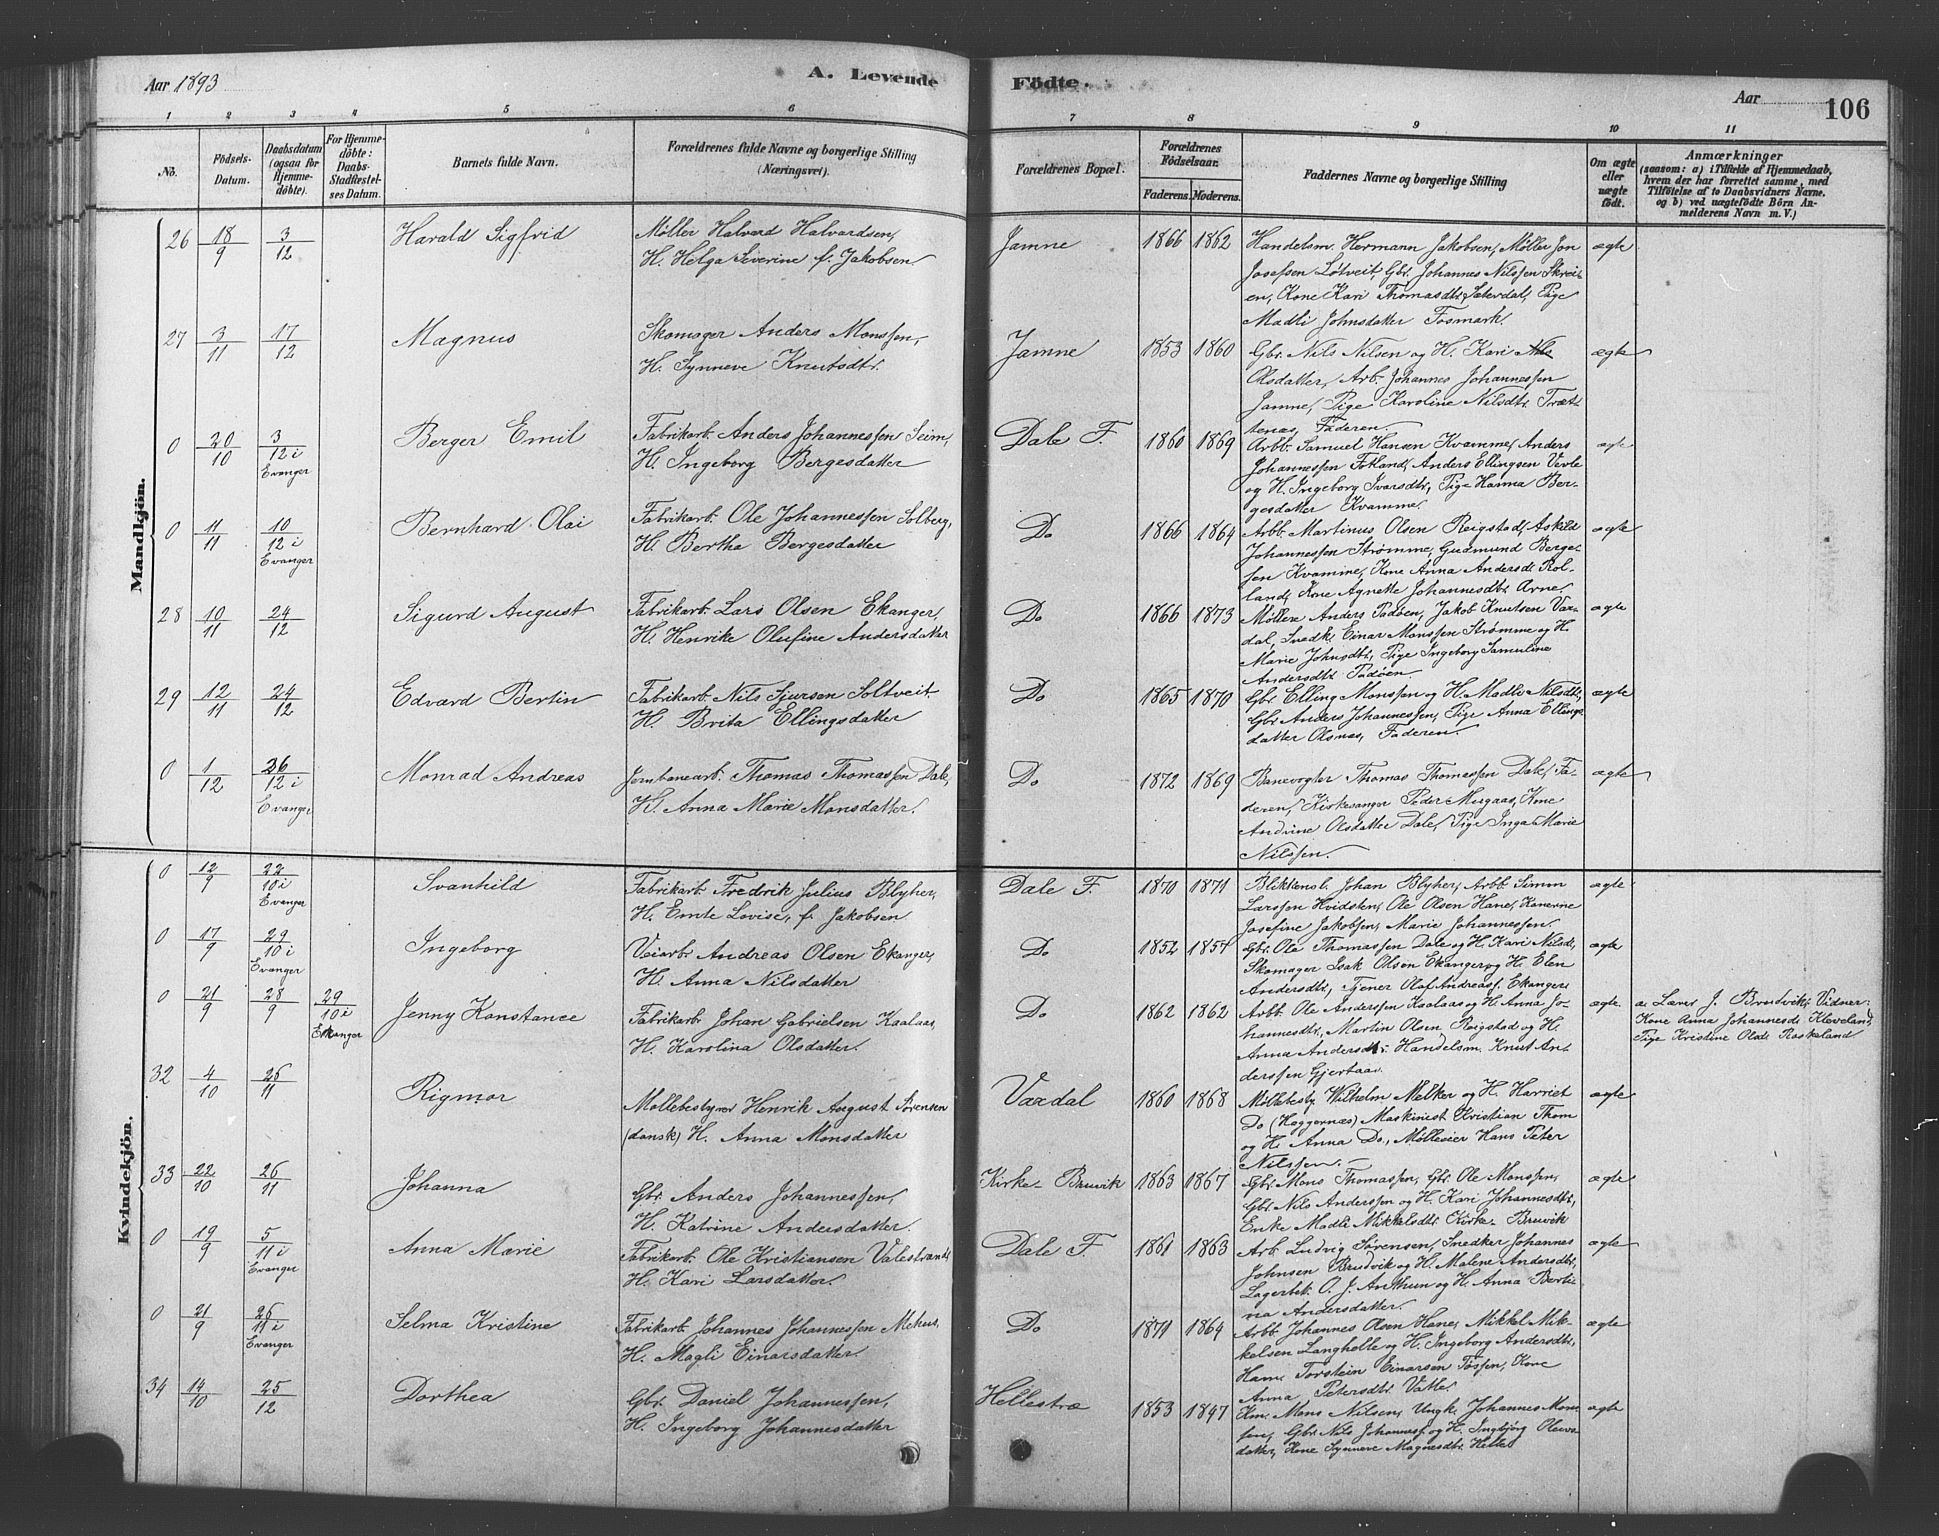 Aar 1893
A. Levende
Födte.
Aar
106
1 2 3 4 5 6 7 8 9 10 11
No.
Födsels-Datum.
Daabsdatum (ogsaa for Hjemme-döbte).
For Hjemme-döbte: Daabs Stadfæstel-ses Datum.
Barnets fulde Navn.
Forældrenes fulde Navne og borgerlige Stilling (Næringsvei).
Forældrenes Bopæl.
Forældrenes Födselsaar.
Faderens. Moderens.
Faddernes Navne og borgerlige Stilling
Om ægte eller uægte födt.
Anmærkninger
(saasom: a) i Tilfælde af Hjemmedaab, hvem der har forrettet samme, med Tilföielse af to Daabsvidners Navne, og b) ved uægtefödte Börn An-melderens Navn m. V.)
Mandkjön.
26 18/9 3/12 Harald Sigfrid
Møller Halvard Halvardsen,
H. Helga Severine f. Jakobsen
Jamne 1866 1862
Handelsm. Hermann Jakobsen, Møller Jon
Josefsen Løtveit, Gbr. Johannes Nilssen Skrei-
en, Kone Kari Thomasdtr. Sæterdal, Pige
Madli Johnsdatter Fosmark.
ægte
27 3/11 17/12 Magnus
Skomager Anders Monssen,
H. Synneve Knutsdtr.
Jamne 1853 1860
Gbr. Nils Nilsen og H. Kari Nils
Olsdatter, Arb. Johannes Johannessen
Jamne, Pige Karoline Nilsdtr. Træt-
tenæs, Faderen.
ægte
0 20/10 3/12 i Evanger Berger Emil
Fabrikarb. Anders Johannessen Seim,
H. Ingeborg Bergesdatter
Dale F. 1860 1869
Arbb. Samuel Hansen Kvamme, Anders
Johannessen Fotland, Anders Ellingsen Vevle
og H. Ingeborg Ivarsdtr., Pige Hanna Ber-
gesdatter Kvamme.
ægte
0 11/11 10/12 i Evanger Bernhard Olai
Fabrikarb. Ole Johannessen Solberg,
H. Bertha Bergesdatter
Do 1866 1864
Arbb. Martinus Olsen Reigstad, Askild
Johannessen Strømme, Gudmund Berge-
sen Kvamme, Kone Anna Andersdt. Rol-
land, Kone Agnette Johannesdtr. Arne.
ægte
28 10/11 24/12 Sigurd August
Fabrikarb. Lars Olsen Ekanger,
H. Henrike Olufine Andersdatter
Do 1866 1873
Møllere Anders Padøen, Jakob Knutsen Vax-
dal, Snedk. Einar Monssen Strømme og H.
Marie Johnsdtr., Pige Ingeborg Samuline
Andersdtr. Padøen.
ægte
29 12/11 24/12 Edvard Bertin
Fabrikarb. Nils Sjursen Soltveit
H. Brita Ellingsdatter
Do 1865 1870
Gbr. Elling Monssen og H. Madli Nilsdtr.,
Gbr. Anders Johannessen, Pige Anna Ellings-
datter Olsnæs, Faderen.
ægte
0 1/12 26/12 i Evanger Monrad Andreas
Jernbanearb. Thomas Thomassen Dale,
H. Anna Marie Monsdatter.
Do 1872 1869
Banevogter Thomas Thomessen Dale, Fa-
deren, Kirkesanger Peder Mugaas, Kone
Andrine Olsdatter Dale, Pige Inga Marie
Nilssen.
ægte
Kvindekjön.
0 12/9 22/10 i Evanger Svanhild
Fabrikarb. Fredrik Julius Blyher,
H. Emte Lovise, f. Jakobsen
Dale F. 1870 1871
Bliktensl. Johan Blyher, Arbb. Simon
Larssen Hvidsten, Ole Olsen Hane, Konerne
Josefine Jakobsen, Marie Johannessen.
ægte
0 17/9 29/10 i Evanger Ingeborg
Veiarb. Andreas Olsen Ekanger,
H. Anna Nilsdatter
Do 1852 1857
Gbr. Ole Thomassen Dale og H. Kari Nilsdt.,
Skomager Isak Olsen Ekanger og H. Elen
Andersdtr., Tjener Olaf Andreas. Ekanger.
ægte
0 21/9 28/9 29/10 i Evanger Jenny Konstance
Fabrikarb. Johan Gabrielsen Kaalaas,
H. Karolina Olsdatter.
Do 1862 1862
Arbb. Ole Anderssen Kaalaas og H. Anna Jo-
hannesdtr., Martin Olsen Reigstad og H.
Anna Andersdtr., Handelsm. Knut An-
derssen Gjertaas.
ægte
a. Lærer J. Brudvik. Vidner:
Kone Anna Johannesdt. Kleveland,
Pige Kristine Olsdt. Raskeland
32 4/10 26/11 Rigmor
Møllebestyrer Henrik August Sørensen
(dansk) H. Anna Monsdatter
Vaxdal 1860 1868
Møllebesty Wilhelm Melker og H. Harriet
Do (Haggernæs) Maskinist Kristian Thom
og H. Anna Do., Møllevier Hans Peter
Nilssen.
ægte
33 22/10 26/11 Johanna
Gbr. Anders Johannessen,
H. Katrine Andersdatter.
Kirke-Bruvik 1863 1867
Gbr. Mons Thomassen, Gbr. Ole Monssen,
Gbr. Nils Anderssen og H. Kari Johannesdtr.,
Enke Madli Mikkelsdtr. Kirke-Bruvik
ægte
0 19/9 5/11 i Evanger Anna Marie
Fabrikarb. Ole Kristiansen Valestrand,
H. Kari Larsdatter.
Dale F. 1861 1863
Arb. Ludvig Sørensen, Snedker Johannes
Johnsen Brudvik og H. Malene Andersdtr.,
Lagerbet. O. J. Anthun og H. Anna Berti-
na Andersdatter.
ægte
0 21/9 26/11 i Evanger Selma Kristine
Fabrikarb. Johannes Johannessen Mehus,
H. Magli Einarsdatter.
Do 1871 1864
Arbb. Johannes Olsen Hane, Mikkel Mik-
kelsen Langhelle og H. Ingeborg Andersdtr.
Hane Torstein Einarsen Fossen, Kone
Anna Petersdtr. Vatle.
ægte
34 14/10 25/12 Dorthea
Gbr. Daniel Johannessen,
H. Ingeborg Johannesdatter
Hellestræ 1853 1847
Km. Mons Nilsen, Ungk. Johannes Mons-
sen, Gbr. Nils Johanness. og H. Ingbjørg Oleus-
datter, Kone Synneve Magnesdtr. Helle
ægte